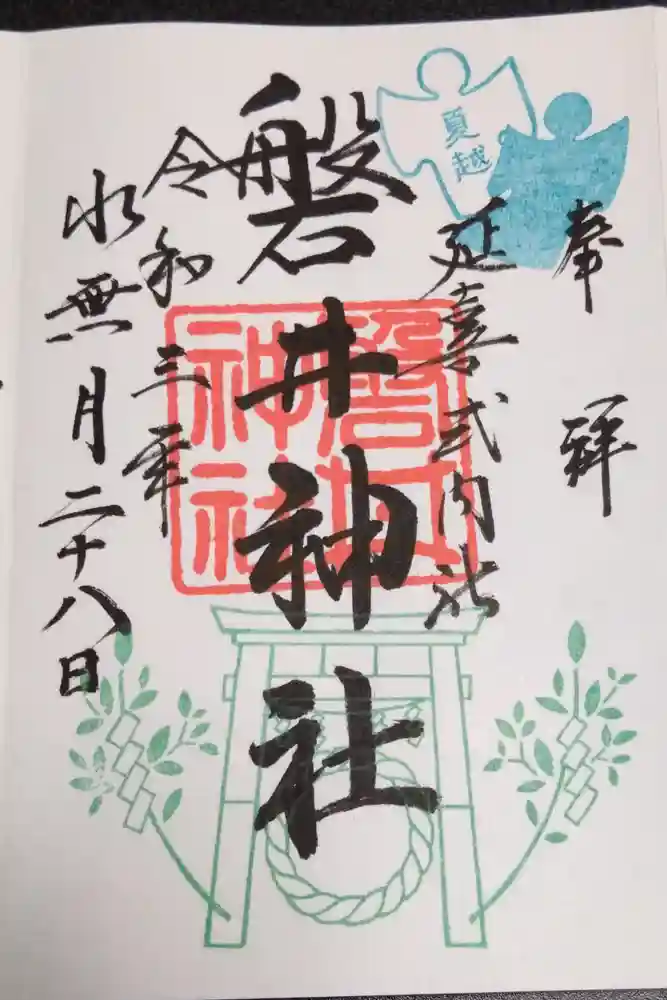 奉拝
夏越
延喜式内社
磐井神社
磐井神社
令和三年
水無月二十八日